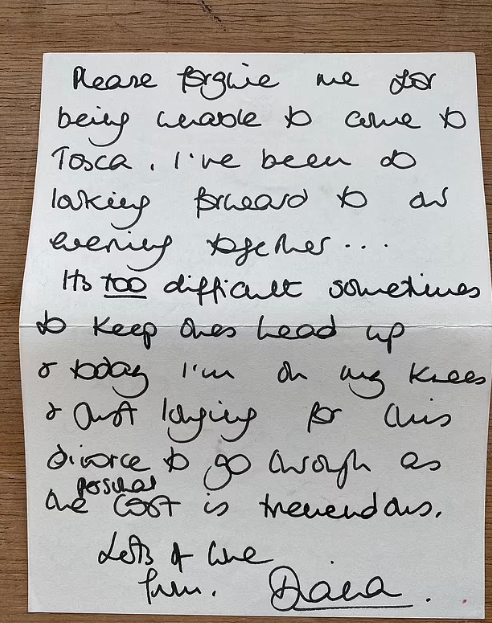 Please forgive me for
being unable to come to
Tosca. I've been so
looking forward to our
evening together...
Its too difficult sometimes
to keep ones head up
& today I'm on my knees
& just longing for this
divorce to go through as
the personal cost is tremendous.
Lots of love
from. Diana.